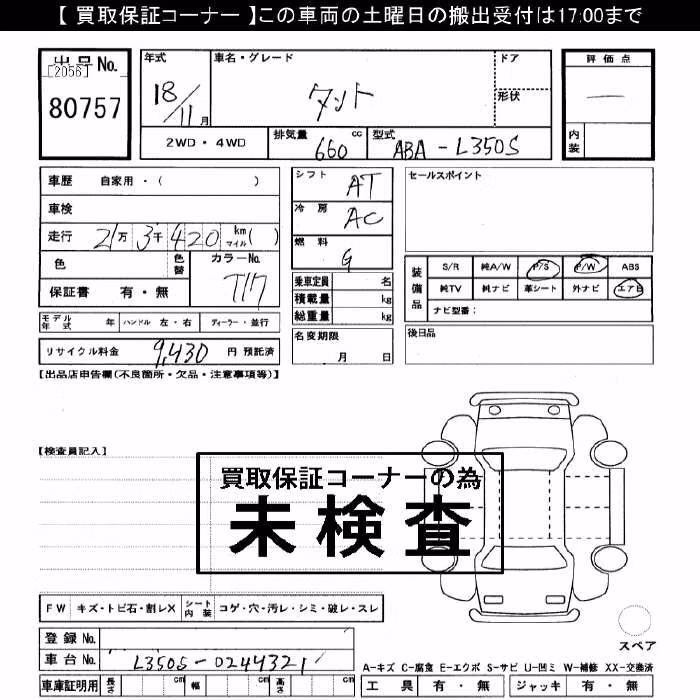 【 買取保証コーナー 】この車両の土曜日の搬出受付は17:00まで
出品 No.
[2056]
80757
年式
18/11月
車名・グレード
タント
ドア
形状
評価点
内装
2WD・4WD
排気量 660 cc
型式 ABA-L350S
車歴 自家用・( )
車検
走行 21万 3千 420 km マイル ( )
色
色替
カラーNo.
T17
保証書 有・無
シフト AT
冷房 AC
燃料 G
乗車定員 名
積載量 kg
総重量 kg
セールスポイント
装備品
S/R 純A/W P/S P/W ABS
純TV 純ナビ 革シート 外ナビ エアB
ナビ型番:
モデル年式 年 ハンドル 左・右 ディーラー・並行
リサイクル料金 9,430 円 預託済
名変期限
月 日
後日品
【出品店申告欄(不良箇所・欠品・注意事項等)】
【検査員記入】
買取保証コーナーの為
未検査
FW キズ・トビ石・割レX シート内装 コゲ・穴・汚レ・シミ・破レ・スレ
スペア
登録 No.
車台 No. L350S-0244321
A-キズ C-腐食 E-エクボ S-サビ U-凹ミ W-補修 XX-交換済
車庫証明用 長さ cm 幅 cm 高さ cm
工具 有・無 ジャッキ 有・無